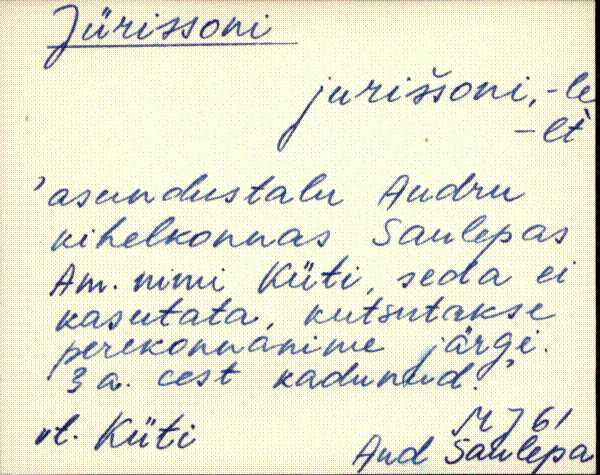 Jürissoni
jurišsoni, -le
-lt
'asundustalu Audru
kihelkonnas Saulepas
Am. nimi Küti, seda ei
kasutata, kutsutakse
perekonnanime järgi.
3 a. eest kadunud.'
vt. Küti
61
Aud Saulepa